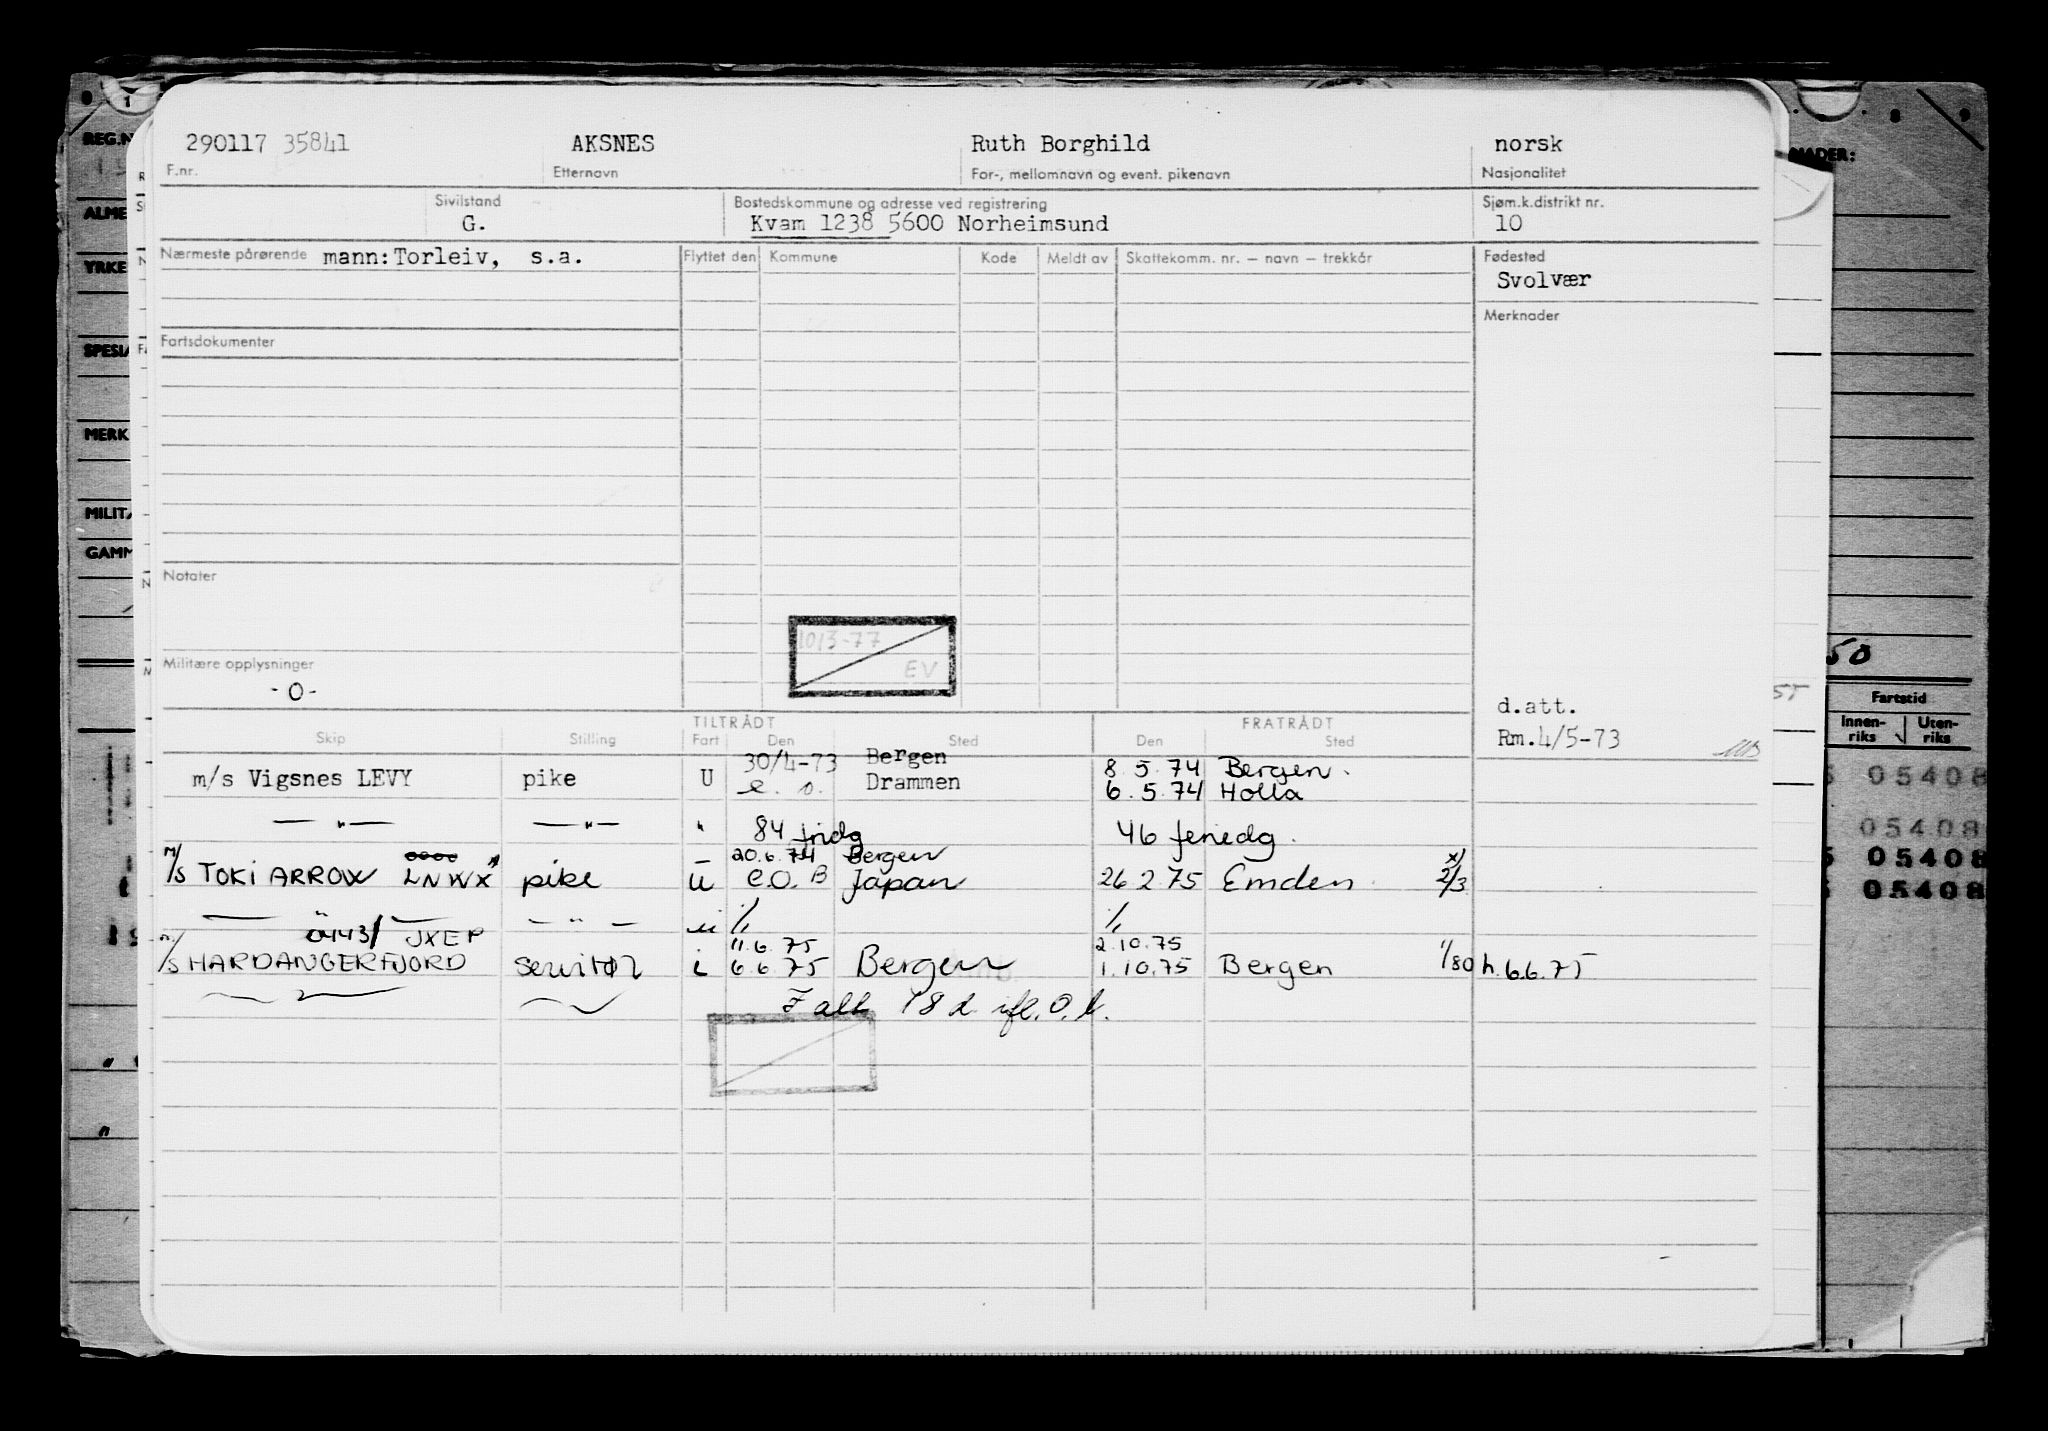 290117 35841 AKSNES Ruth Borghild norsk
F.nr. Etternavn For-, mellomnavn og event. pikenavn Nasjonalitet
Sivilstand Bostedskommune og adresse ved registrering Sjøm.k.distrikt nr.
G. Kvam 1238 5600 Norheimsund 10
Nærmeste pårørende mann:Torleiv, s.a. Flyttet den Kommune Kode Meldt av Skattekomm. nr. — navn — trekkår Fødested
Svolvær
Merknader
Fartsdokumenter
Notater
1013-77
EV
Militære opplysninger
-0-
d.att.
Rm.4/5-73
TILTRÅDT FRATRÅDT
Skip Stilling Fart Den Sted Den Sted
30/4-73 Bergen 8.5.74 Bergen.
m/s Vigsnes LEVY pike U e.o. Drammen 6.5.74 Holla
— " — — " — " 84 fridg 46 feriedg.
20.6.74 Bergen
M/S TOKI ARROW LNWX pike U e.o. B Japan 26 2 75 Emden x) 2/3
— " — — " — u 1/1 1/1
0443/ JXEP 11.6.75 2.10.75
M/S HARDANGERFJORD servitør i 6.6.75 Bergen 1.10.75 Bergen 1/80 h. 6.6.75
I alt 18 d. ifl. O.b.
REG.N
ALME
YRKE
SPESIA
MERK
MILITÆ
GAMM
NADER:
50
Fartstid
Innen-riks Uten-riks
05408
05408
05408
05408